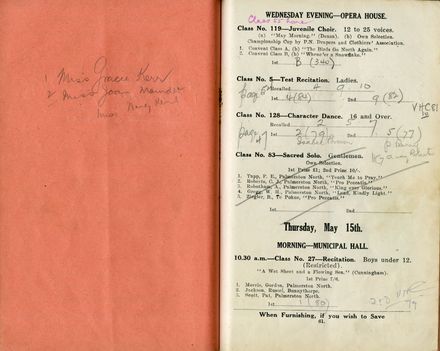 1 Miss Gracie Kerr
2 Miss Joan
Miss
WEDNESDAY EVENING—OPERA HOUSE.
Class No. 119—Juvenile Choir. 12 to 25 voices.
(a) "May Morning." (Denza). (b) Own Selection.
Championship Cup by P.N. Drapers and Clothiers' Association.
1. Convent Class A, (b) "The Birds Go North Again."
2. Convent Class B, (b) "Whene'er a Snowflake."
1st B (340)
Class No. 5—Test Recitation. Ladies.
Recalled 4 9 10
1st 4 (84) 2nd 9 (82)
Class No. 128—Character Dance. 16 and Over.
Recalled 2 5 7
1st 2 (79) 2nd 5 (77)
VHC 81
Class No. 83—Sacred Solo. Gentlemen.
Own Selection.
1st Prize £1; 2nd Prize 10/-
1. Tapp, F. E., Palmerston North, "Teach Me to Pray."
2. Roberts, C. J., Palmerston North, "Pro Peccatis."
3. Robotham, A., Palmerston North, "King ever Glorious."
4. Gregg, W. H., Palmerston North, "Lead, Kindly Light."
5. Ziegler, B., Te Pohue, "Pro Peccatis."
1st 2nd
Thursday, May 15th.
MORNING—MUNICIPAL HALL.
10.30 a.m.—Class No. 27—Recitation. Boys under 12.
(Restricted).
"A Wet Sheet and a Flowing Sea," (Cunningham).
1st Prize 7/6.
1. Morris, Gordon, Palmerston North.
2. Jackson, Russel, Bunnythorpe.
3. Scott, Pat, Palmerston North.
1st 1 (80)
79
When Furnishing, if you wish to Save
61.